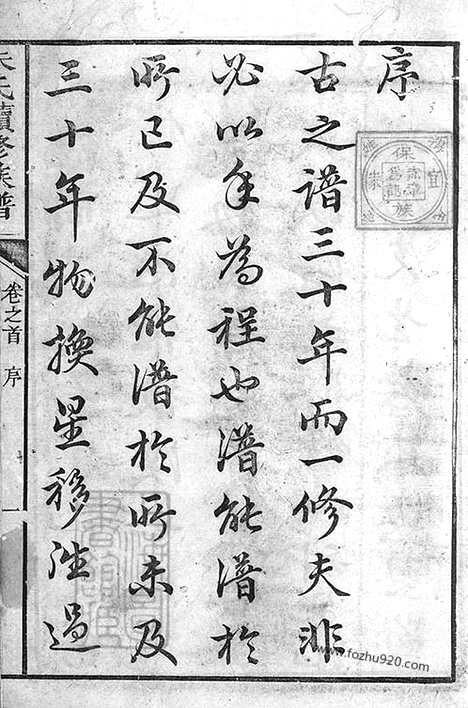 序
古之譜三十年而一修夫非
必以年為程也譜能譜於
所已及不能譜於所未及
三十年物換星移
氏續修族譜
卷之首 序
一
保族宜家
www.fozhu920.com